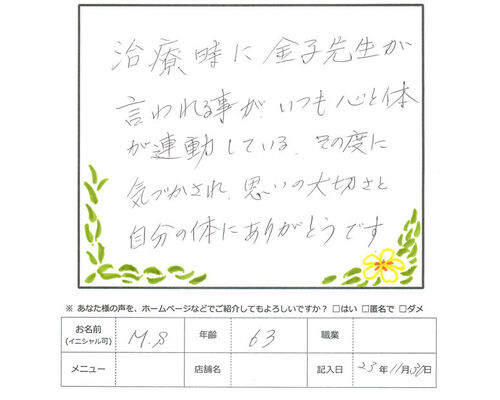 治療時に金子先生が
言われる事が、いつも心と体
が連動している。その度に
気づかされ、思いの大切さと
自分の体にありがとうです
※ あなた様の声を、ホームページなどでご紹介してもよろしいですか？ □はい □匿名で □ダメ
お名前 (イニシャル可) M.S 年齢 63 職業
メニュー 店舗名 記入日 23年 11月 日